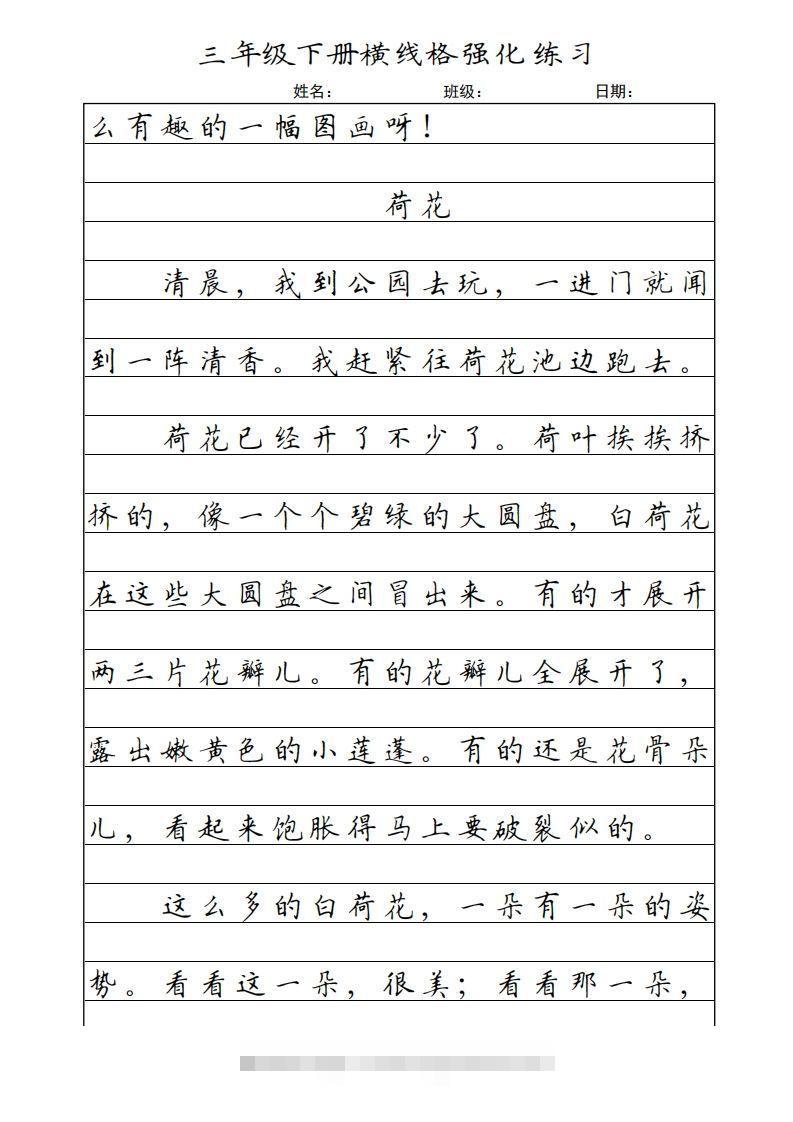 三年级下册横线格强化练习
姓名： 班级： 日期：
么有趣的一幅图画呀！
荷花
清晨，我到公园去玩，一进门就闻
到一阵清香。我赶紧往荷花池边跑去。
荷花已经开了不少了。荷叶挨挨挤
挤的，像一个个碧绿的大圆盘，白荷花
在这些大圆盘之间冒出来。有的才展开
两三片花瓣儿。有的花瓣儿全展开了，
露出嫩黄色的小莲蓬。有的还是花骨朵
儿，看起来饱胀得马上要破裂似的。
这么多的白荷花，一朵有一朵的姿
势。看看这一朵，很美；看看那一朵，